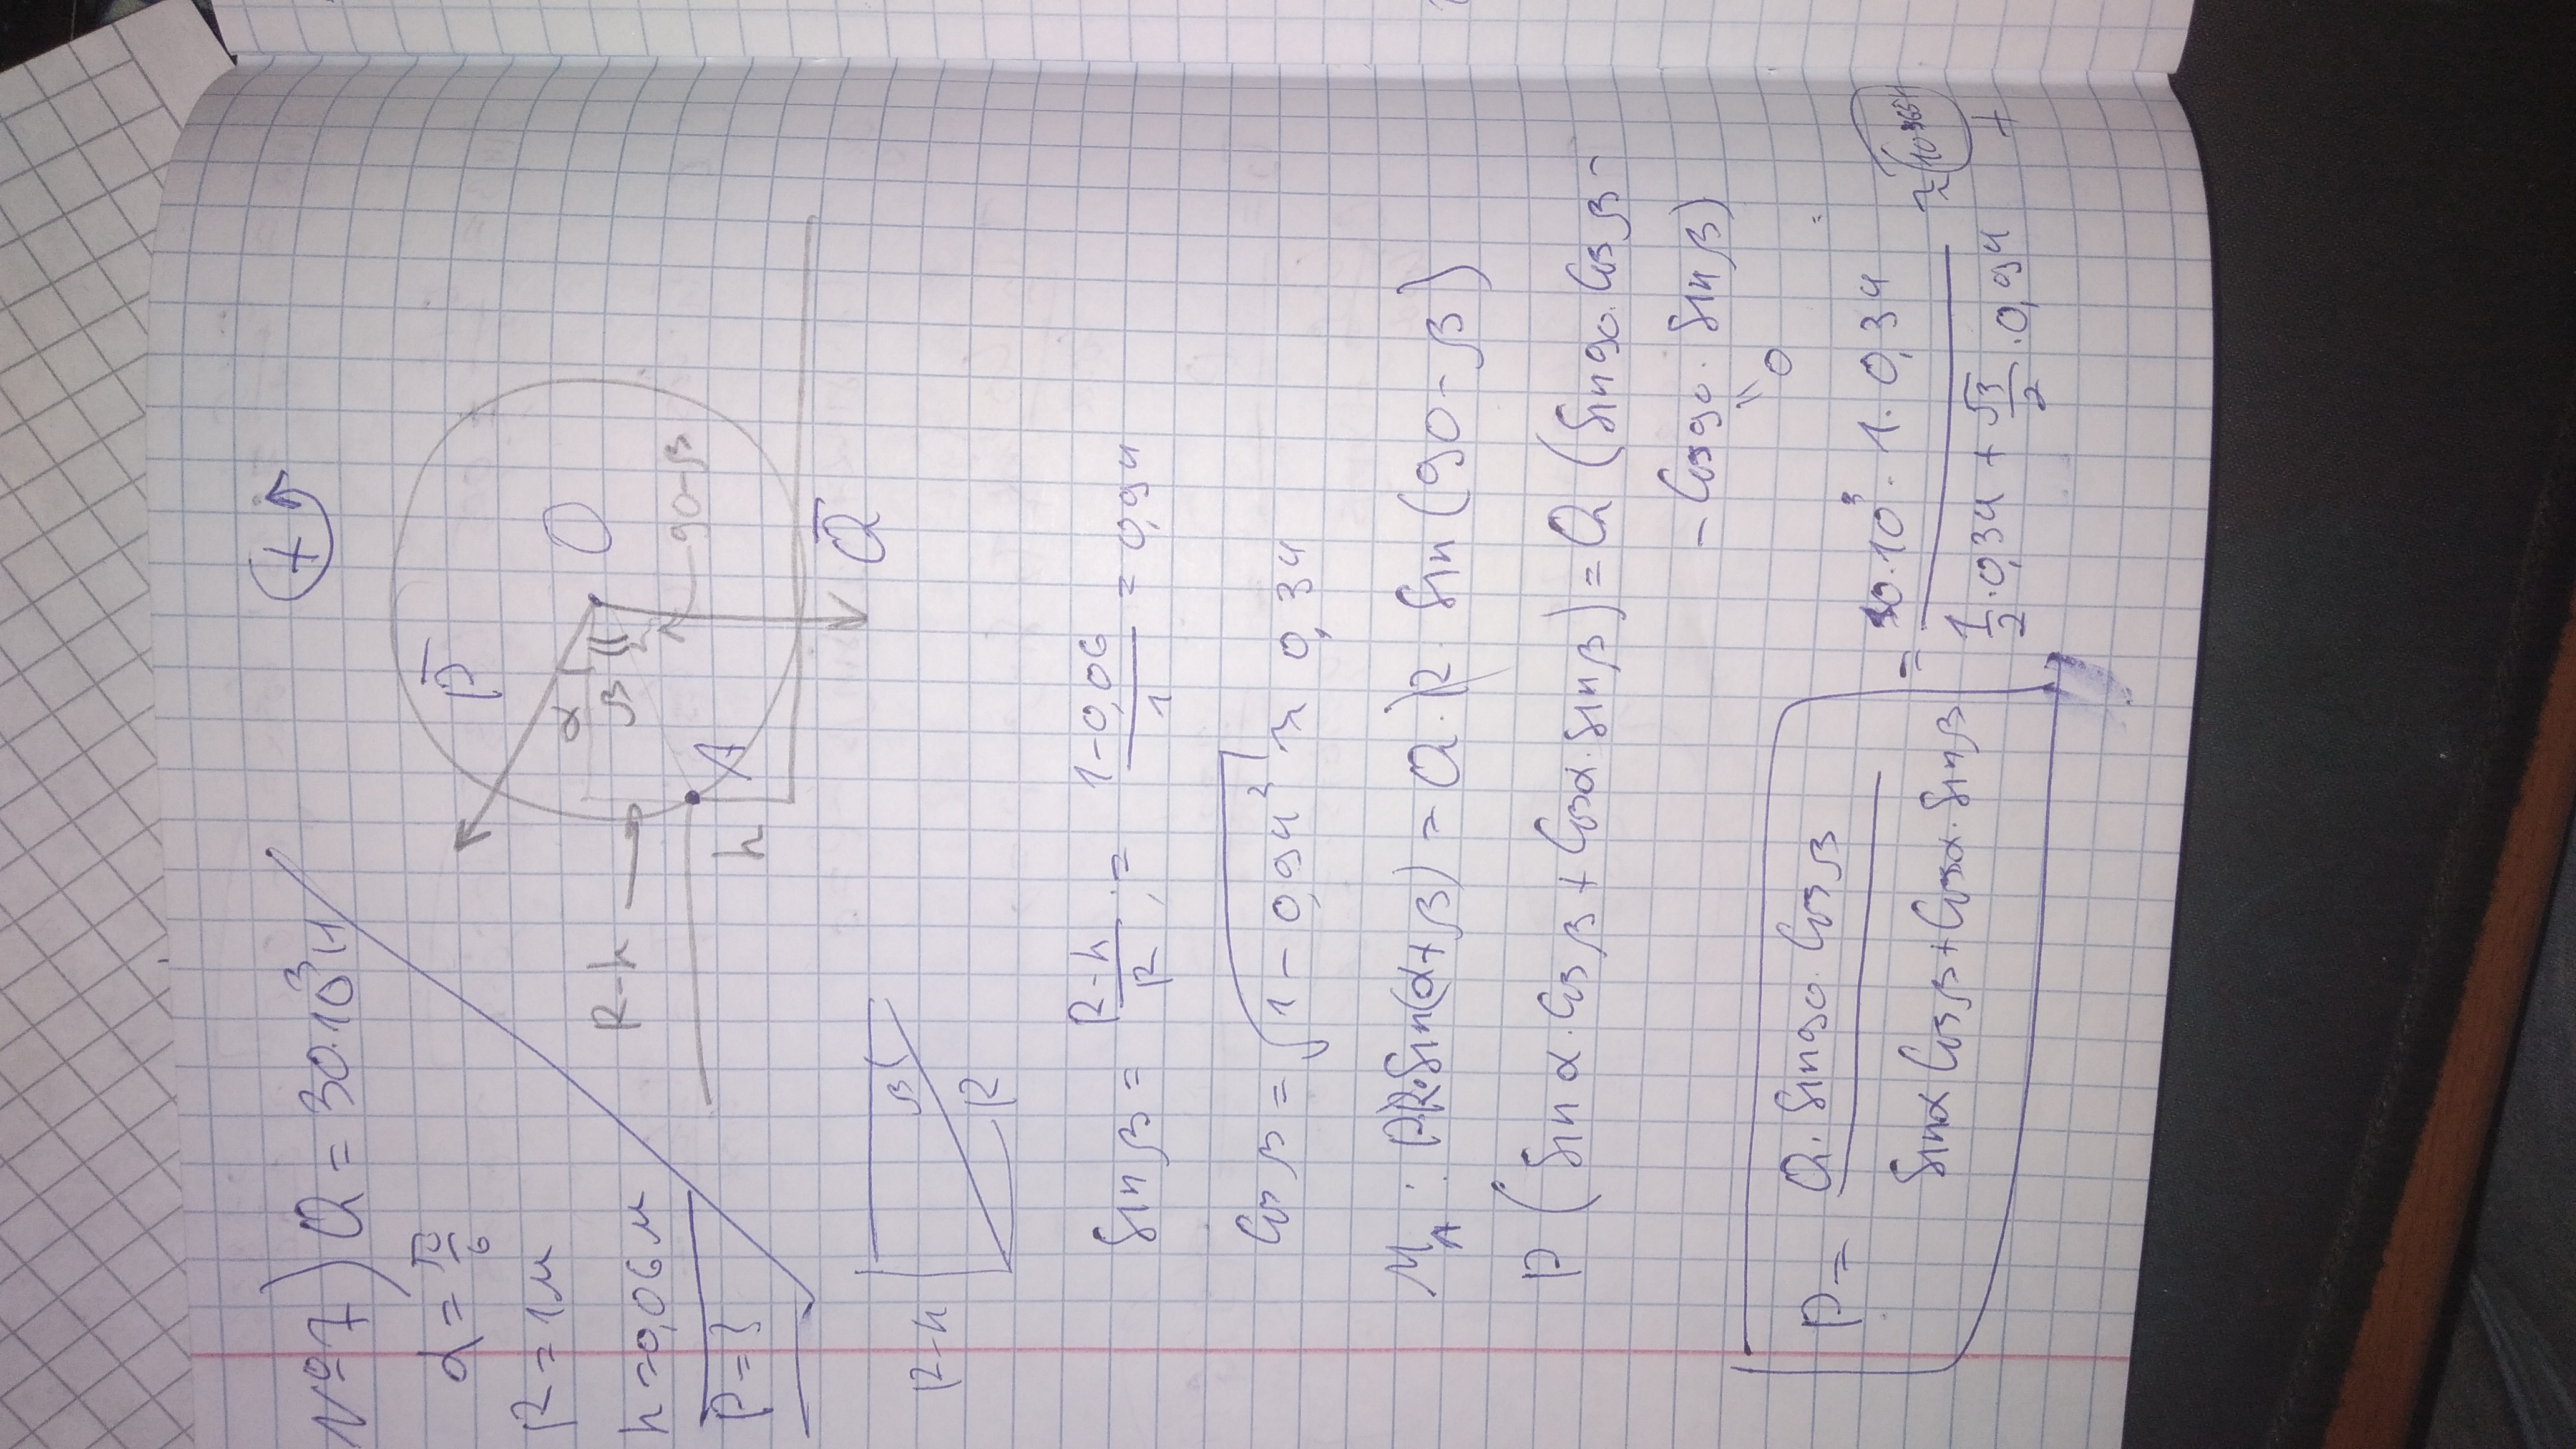 №7) Q = 30·10³ Н
+
α = π/6
R = 1м
h = 0,06 м
P = ?
P̄
α
O
R-h
β
90-β
A
h
Q̄
R-h
β
R
Sin β = (R-h)/R ; = (1-0,06)/1 = 0,94
Cos β = √(1 - 0,94²) ≈ 0,34
M_A : P·R·Sin(α+β) = Q·R· Sin(90-β)
P (Sin α · Cos β + Cos α · Sin β) = Q (Sin 90 · Cos β -
- Cos 90 · Sin β)
0
P = (Q · Sin 90 · Cos β)/(Sin α Cos β + Cos α · Sin β) = (30·10³ · 1 · 0,34)/(1/2 · 0,34 + √3/2 · 0,94) ≈
+